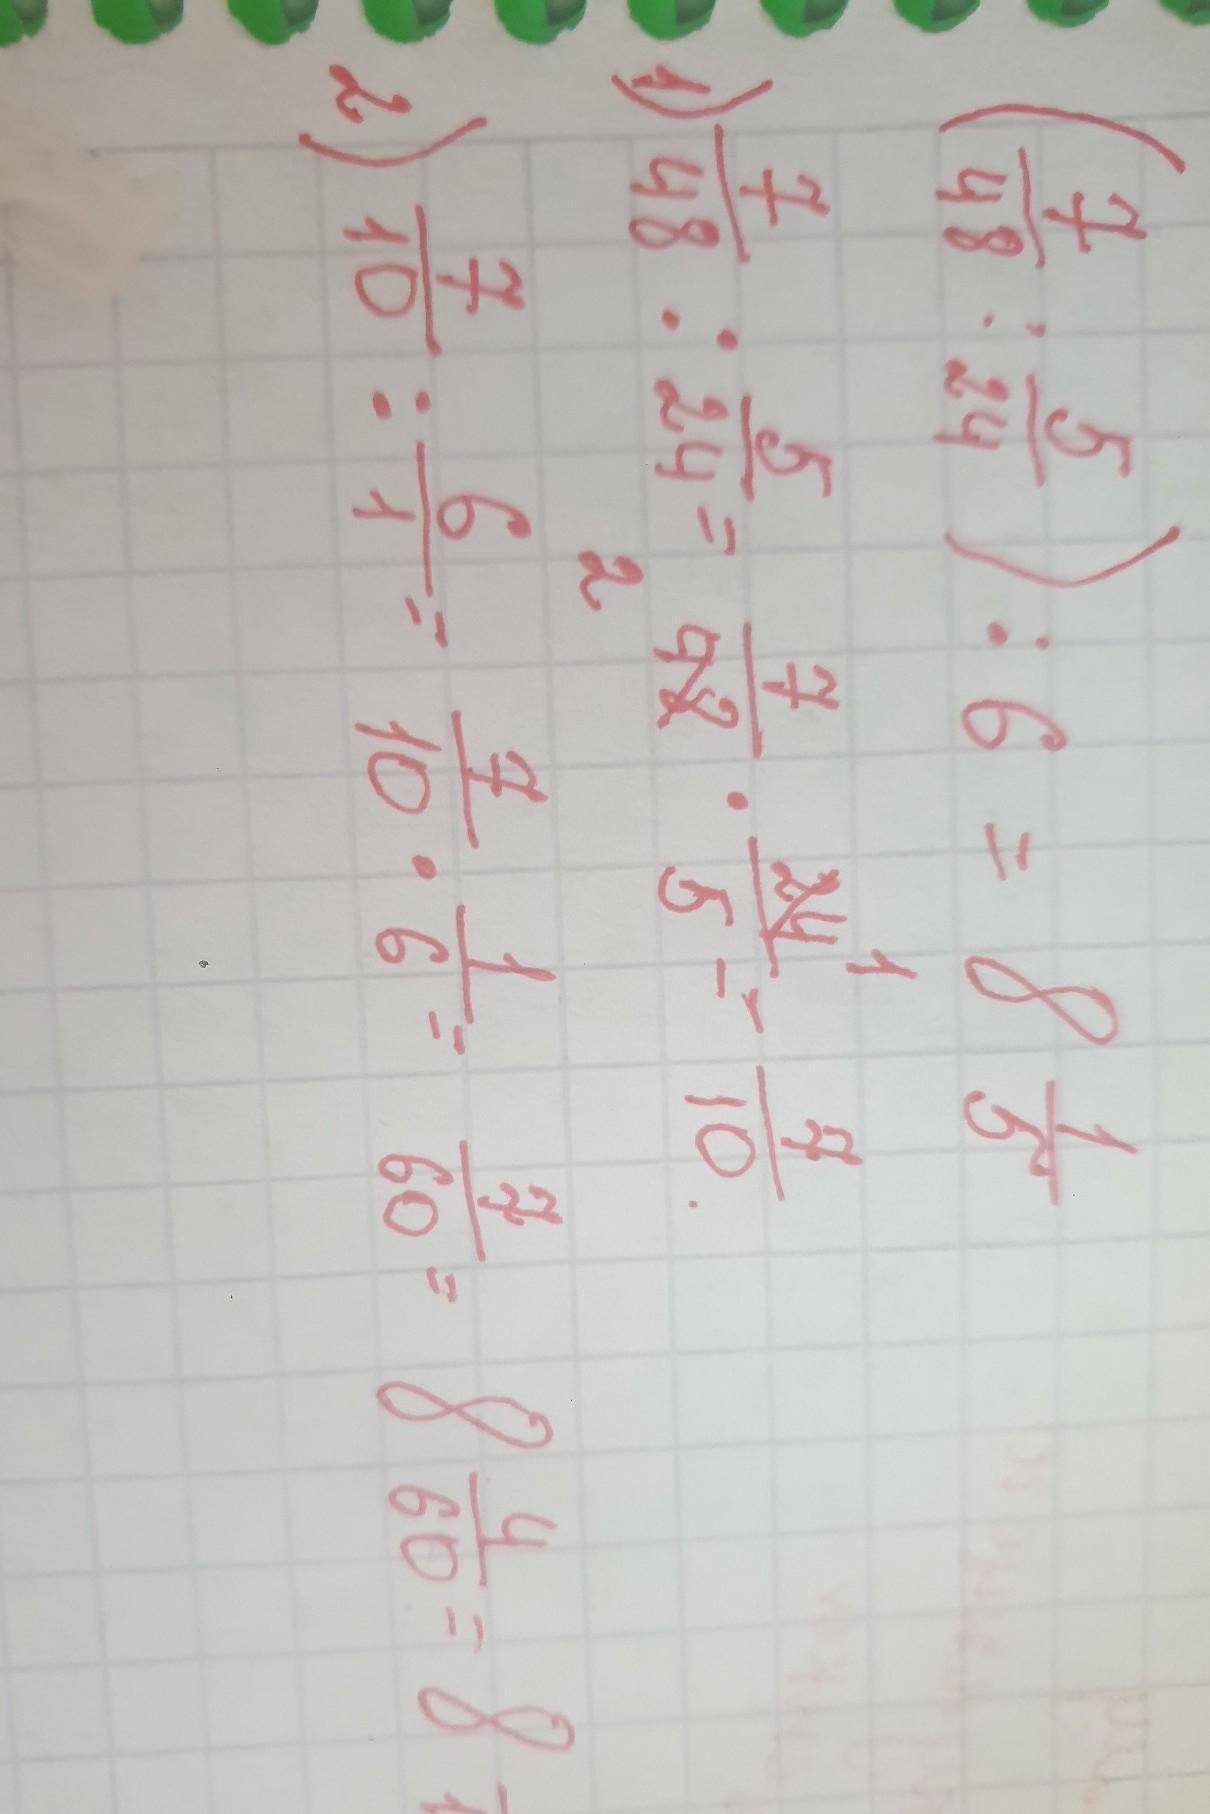 (7/48 : 5/24) : 6 = 8 1/5
1) 7/48 : 5/24 = 7/48 2 · 24/5 1 = 7/10.
2) 7/10 : 6/1 = 7/10 · 1/6 = 7/60 = 8 4/60 = 8